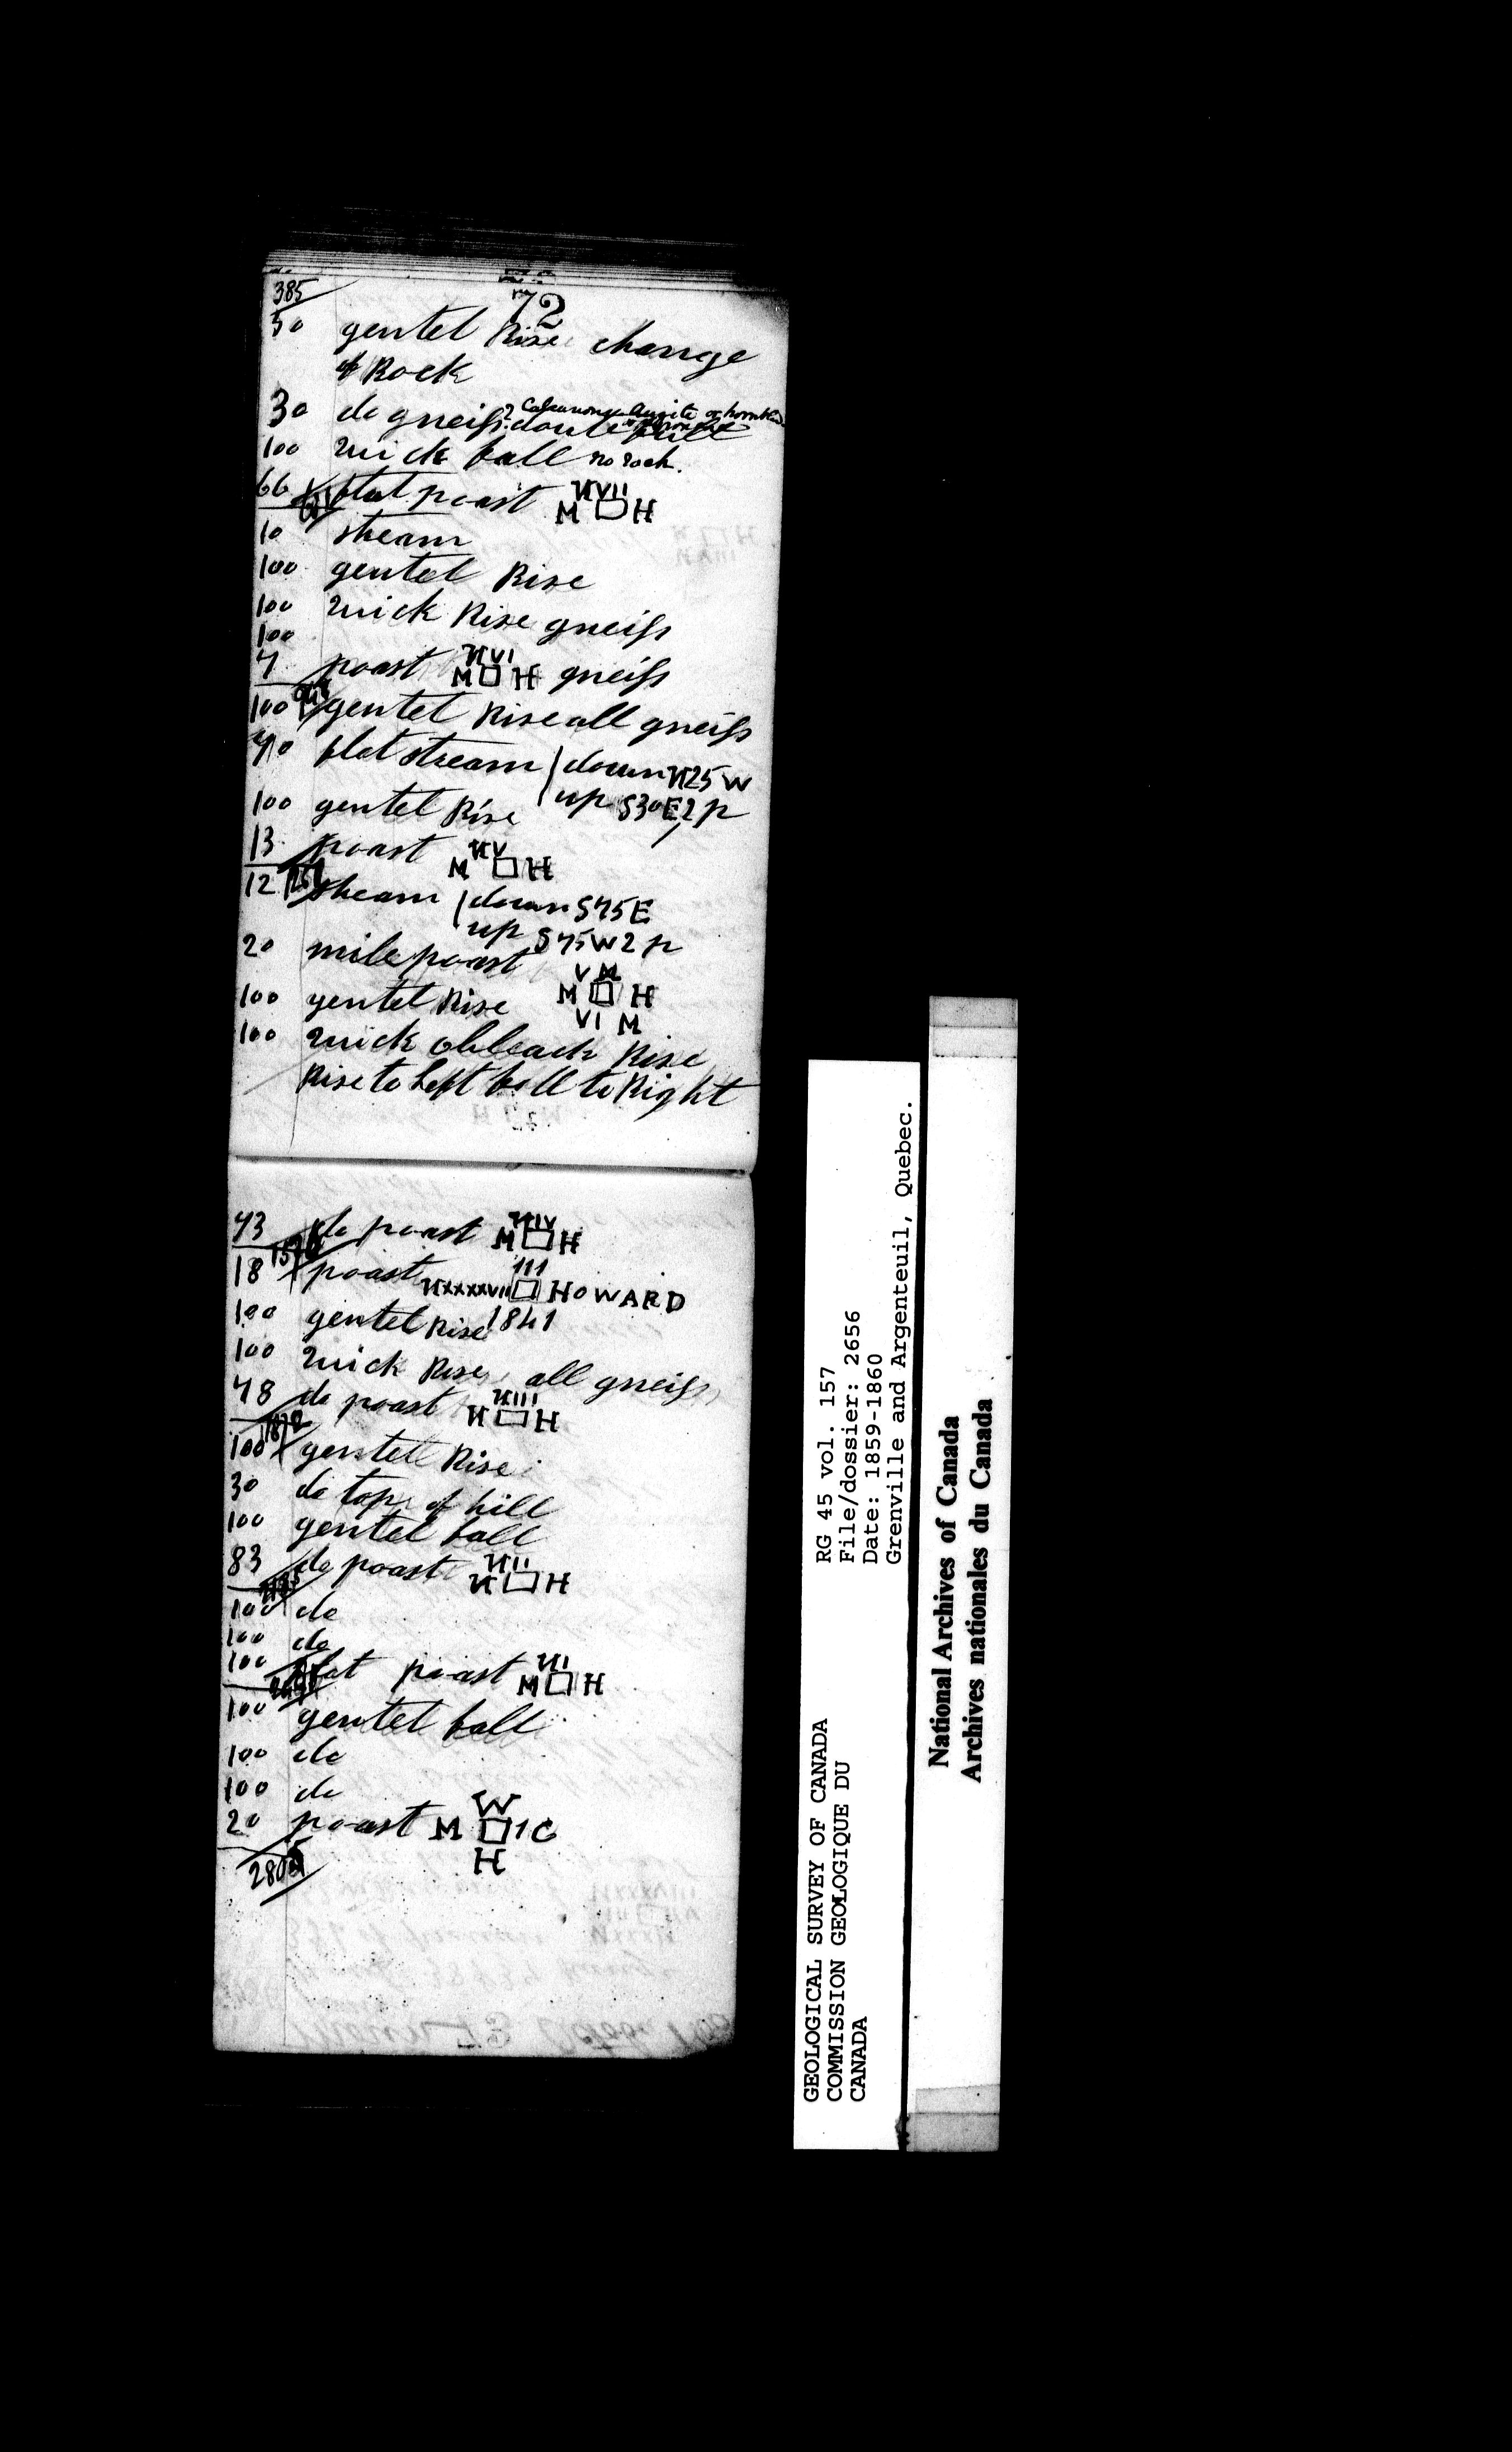 72
385
50 gentel Rise change
of Rock
30 do gneiss? Calcareous Augite or hornblend
doute full
100 quick fall no rock.
66 flat poast NVII
631 M □ H
10 steam
100 gentel Rise
100 quick Rise gneiss
100
7 poast NVI
M □ H gneiss
948
100 gentel Rise all gneiss
70 flat stream down N25W
up S30E 2p
100 gentel Rise
13 poast NV
M □ H
12 steam down S75E
up S75W 2p
20 mile poast V M
M □ H
VI M
100 gentel Rise
100 quick obleack Rise
Rise to Left fall to Right
73 do poast NIV
M □ H
18 poast III
NXXXXVII □ HOWARD
1841
100 gentel Rise
100 quick Rise all gneiss
78 do poast NIII
N □ H
1872
100 gentel Rise
30 do top of hill
100 gentel fall
83 do poast NII
N □ H
100 do
100 do
100 flat poast NI
M □ H
100 gentel fall
100 do
100 do
20 poast W
M □ 1C
H
GEOLOGICAL SURVEY OF CANADA
COMMISSION GEOLOGIQUE DU
CANADA
RG 45 vol. 157
File/dossier: 2656
Date: 1859-1860
Grenville and Argenteuil, Quebec.
National Archives of Canada
Archives nationales du Canada